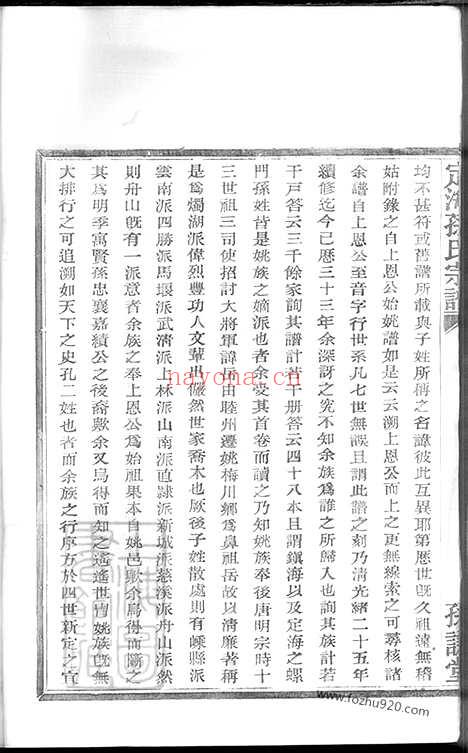 定海孫氏宗譜
均不甚符或舊譜所載與子姓所傳之名諱彼此互異耶第歷世旣久祖遠無稽
姑附錄之自上恩公始姚譜如是云云溯上恩公而上之更無線索之可尋核諸
余譜自上恩公至音字行世系凡七世無誤且謂此譜之刻乃清光緒二十五年
續修迄今已歷三十三年余深訝之究不知余族爲誰之所歸人也詢其族計若
干戶答云三千餘家詢其譜計若干册答云四十八本且謂鎭海以及定海之螺
門孫姓皆是姚族之嫡派也者余受其首卷而讀之乃知姚族奉後唐明宗時十
三世祖三司使招討大將軍諱岳由睦州遷姚梅川鄉爲鼻祖岳故以清廉著稱
是爲燭湖派偉烈豐功人文輩出儼然世家喬木也厥後子姓散處則有嵊縣派
雲南派四勝派馬堰派武清派上林派山南派直隷派新城派慈溪派舟山派然
則舟山旣有一派意者余族之奉上恩公爲始祖果本自姚邑歟余烏得而臆之
其爲明季寓賢孫忠襄嘉績公之後裔歟余又烏得而知之遙遙世冑姚族旣無
大排行之可追溯如天下之史孔二姓也者而余族之行序方於四世新定之宜
孫譜堂
nayona.cn
www.fozhu920.com